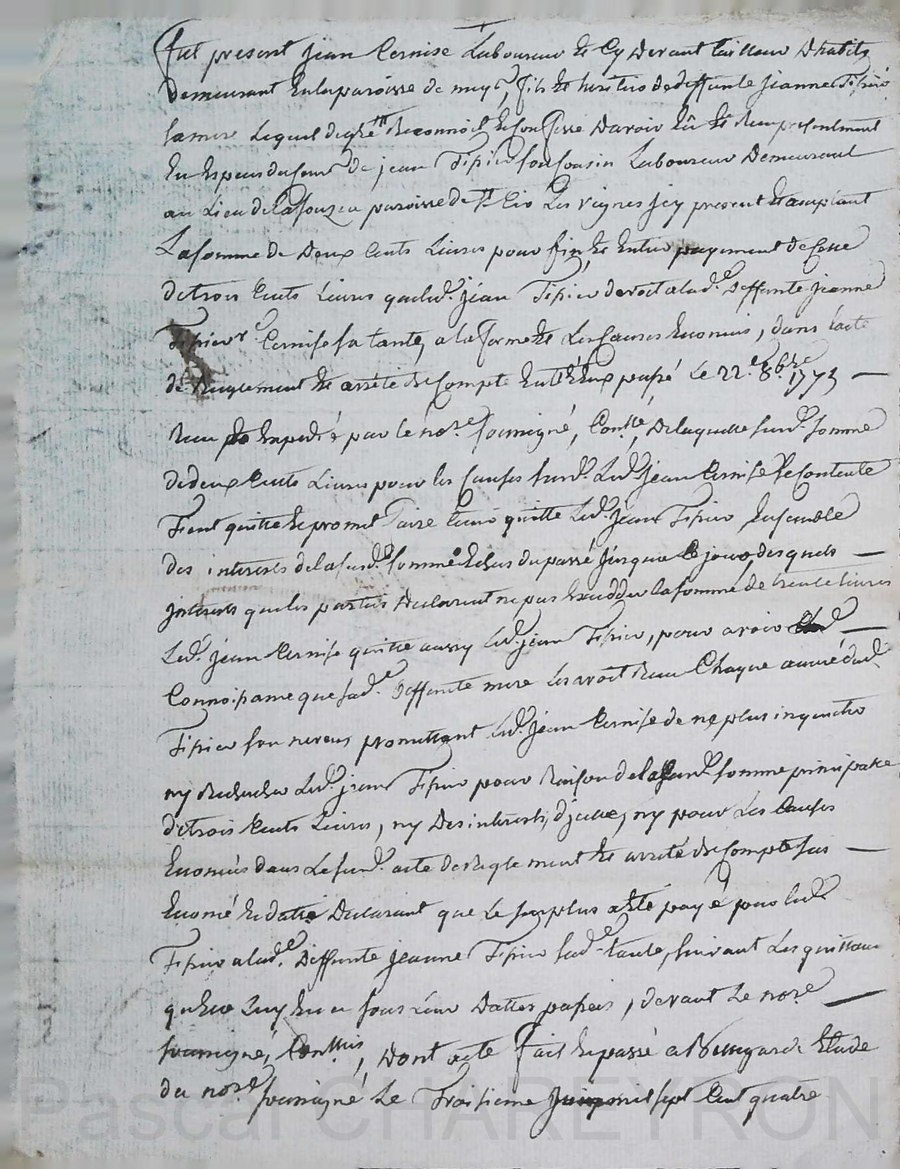 Fut present Jean Cernise Laboureur et Cy Devant tailleur Dhabits
Demeurant en la paroisse de                fils et heritier de deffunte Jeanne Tipier
sa mere Lequel de gré Reconnoit et confesse Davoir Eû et Reçu presentment
En Especes du cour de jean Tipier son Cousin Laboureur Demeurant
au Lieu de la            paroisse de st          Les vignes Jcy present et acceptant
La somme de Deux Cents Livres pour fin et Entier payement de Celle
de trois Cents Livres que led. jean Tipier devoit a lad.e Deffunte jeanne
Tipier v.e Cernise sa tante, a la forme et Les Causes Enoncés, dans Lacte
de Reiglement et arrété de Compte Entr'Eux passé Le 22.e 8bre 1773 —
Reçu et Expedié par le no.re soussigné, De laquelle susd. somme
de deux Cents Livres pour les Causes susd. Led. jean Cernise se Contente
Tient quitte et promet faire tenir quitte Led. Jean Tipier Ensemble
des interests de la susd.e somme Echus du passé jusqua Ce jour, desquels —
jnterests que les parties Declarent ne pas Exedder la somme de trente Livres
Led. jean Cernise quitte aussy led. jean Tipier, pour avoir —
Connoissance que sad.e Deffunte mere les avoit Reçu Chaque année dud.
Tipier son neveux promettant Led. Jean Cernise de ne plus inquieter
ny Rechercher Led. jean Tipier pour Raison de la susd. somme principale
de trois Cents Livres, ny Des interests d'jcelle, ny pour Les Causes
Enoncés dans Le susd. acte de Reglement et arrété de Compte sus —
Enoncé et datté Declarant que Le surplus a Eté payé par led.
Tipier a lad.e Deffunte jeanne Tipier sad.e tante, suivant Les quittances
quElle Luy En a fous Leur Dattes passées, devant Le no.re —
soussigné,           , Dont acte fait Et passé a Bussigarde Etude
du no.re soussigné Le Troisieme           mil sept Cent quatre